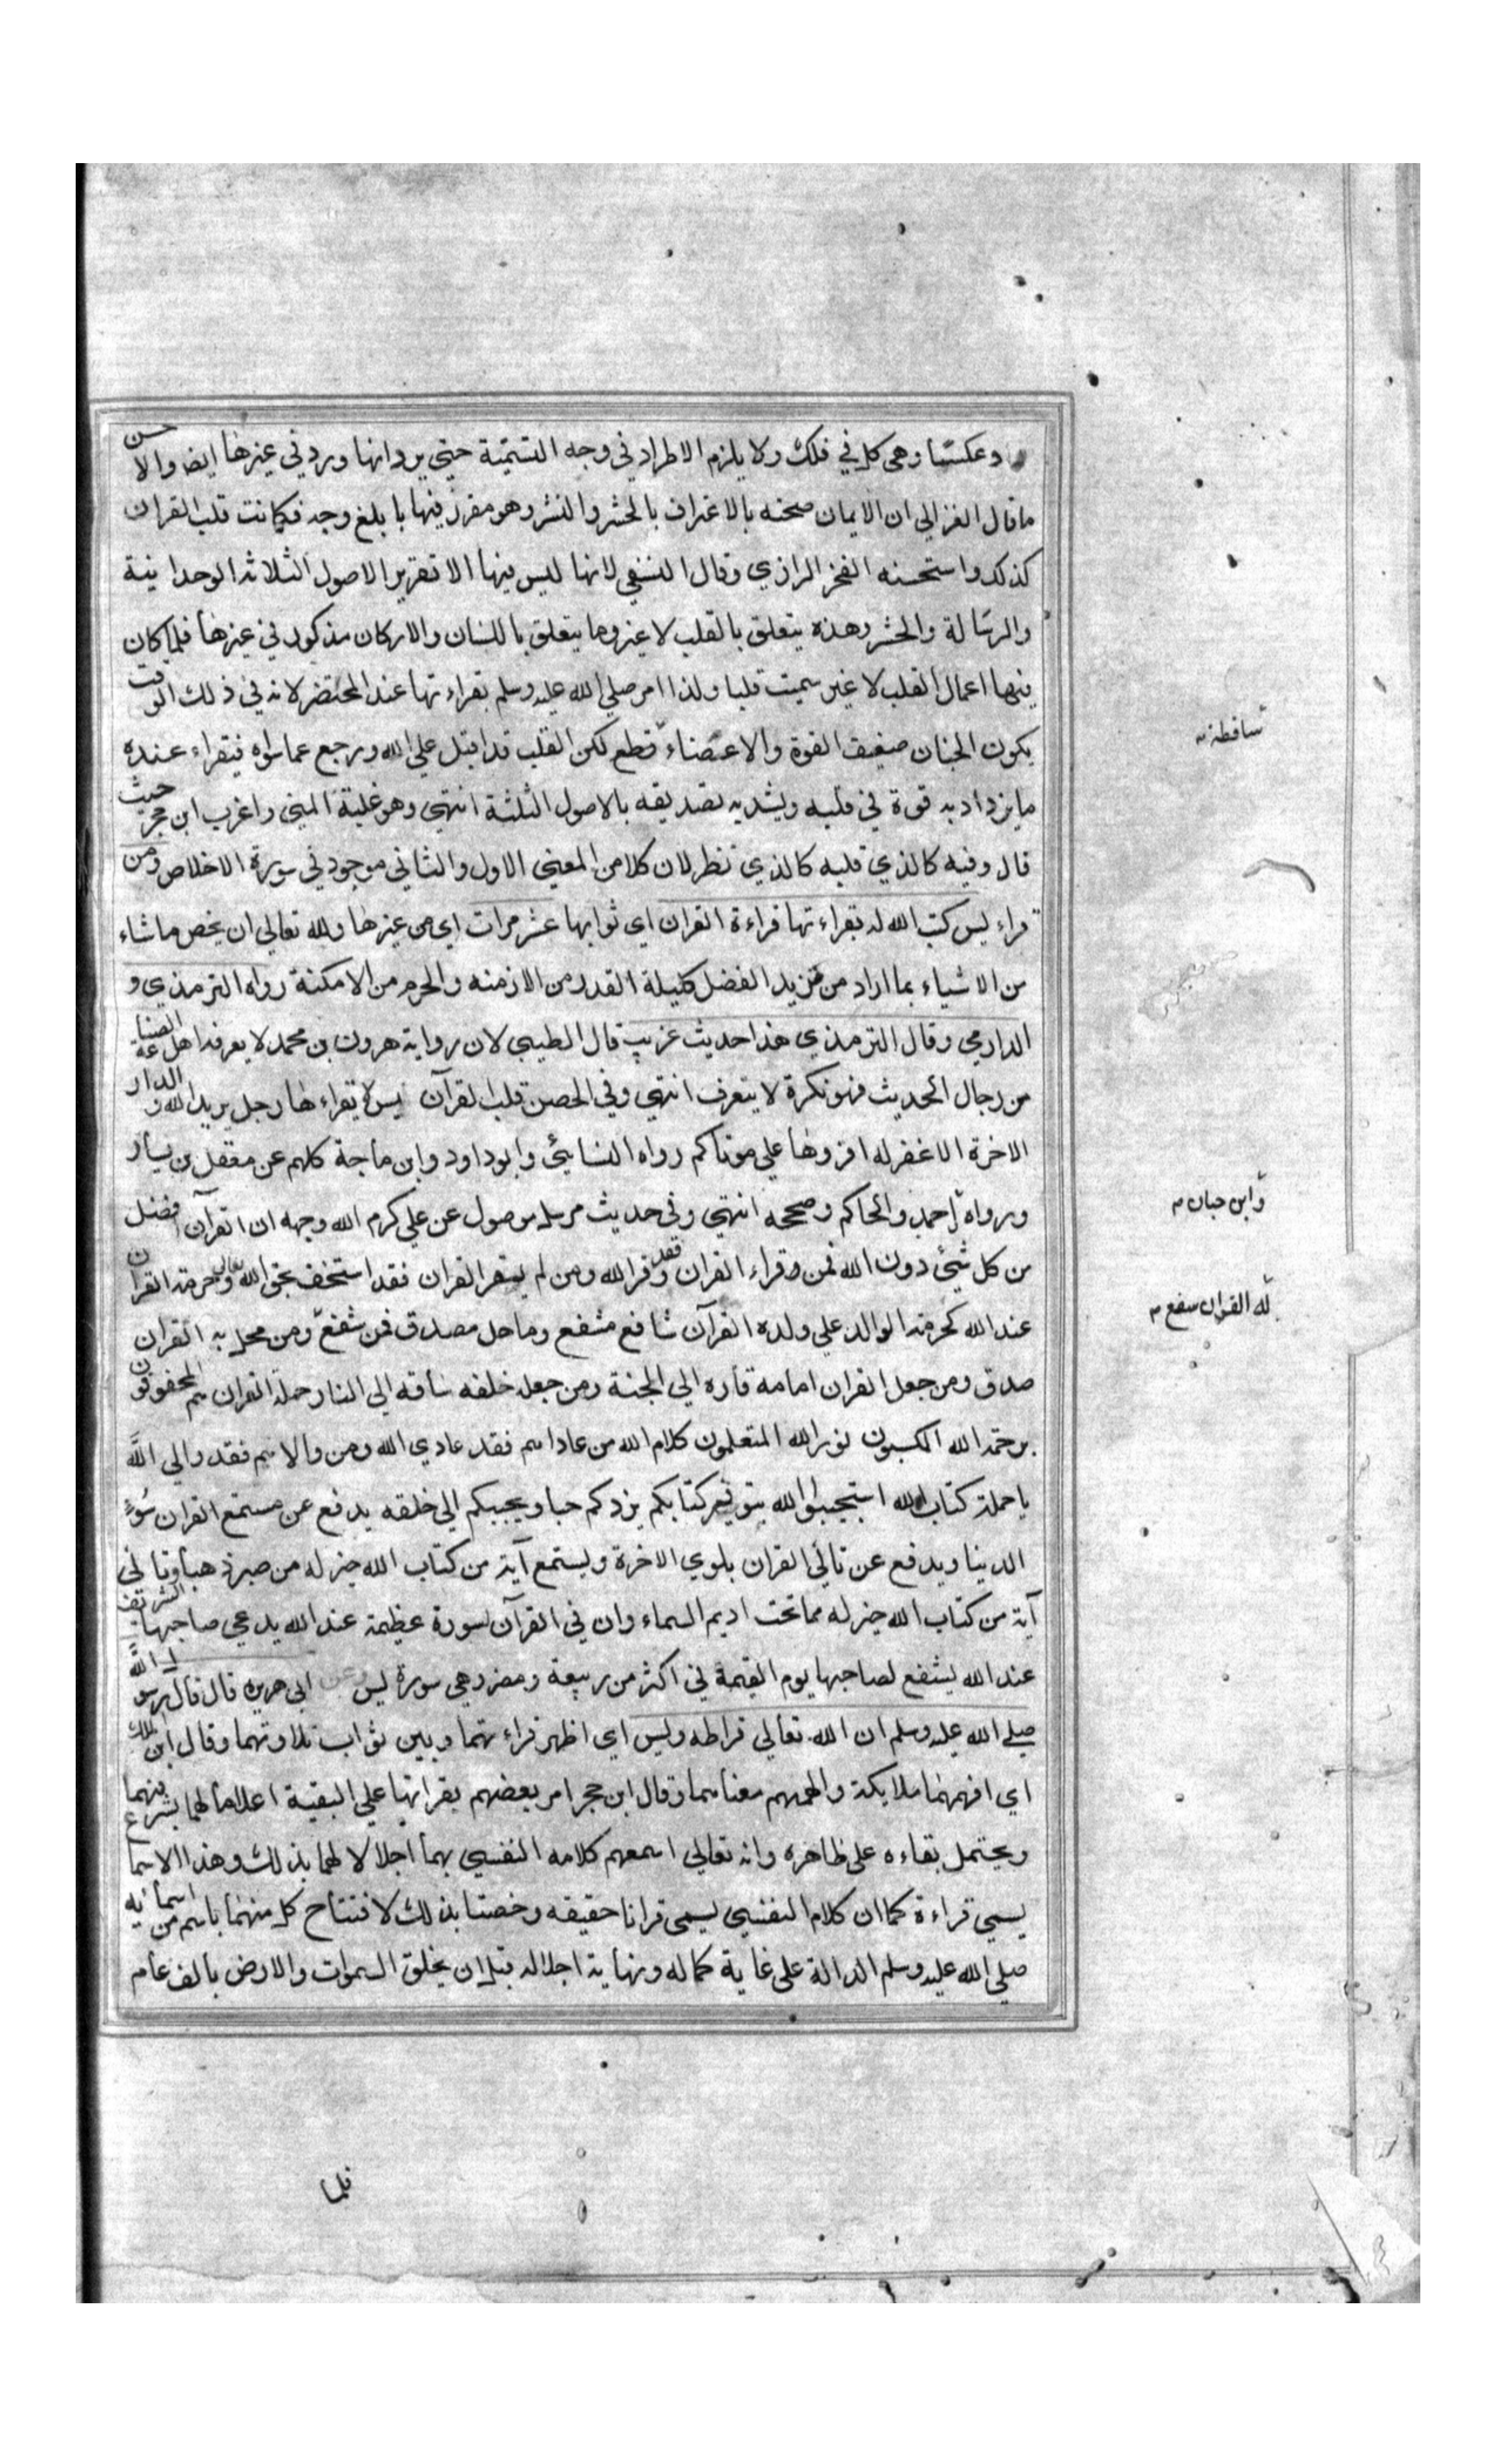 و عكسا وهي كل في فلك ولا يلزم الاطراد في وجه التسمية حتي يرد انها ورد في غيرها ايضا والاحسن
ما قال الغزالي ان الايمان صحته بالاعتراف بالحشر والنشر وهو مقرر فيها بابلغ وجه فكانت قلب القران
كذلك واستحسنه الفخر الرازي وقال النسفي لانها ليس فيها الا تقرير الاصول الثلاثة الوحدانية
والرسالة والحشر وهذه يتعلق بالقلب لا غير وما يتعلق باللسان والاركان مذكور في غيرها فلما كان
فيها اعمال القلب لا غير سميت قلبا ولذا امر صلي الله عليه وسلم بقراءتها عند المحتضر لانه في ذلك الوقت
يكون الجنان ضعيف القوة والاعضاء قطع لكن القلب قد اقبل علي الله ورجع عما سواه فيقراء عنده
ما يزداد به قوة في قلبه ويشد به تصديقه بالاصول الثلثة انتهي وهو غلبة المبني واغرب ابن حجر حيث
قال وفيه كالذي قلبه كالذي نظر لان كلا من المعني الاول والثاني موجود في سورة الاخلاص ومن
قراء يس كتب الله له بقراءتها قراءة القران اي ثوابها عشر مرات اي من غيرها ولله تعالي ان يخص ما شاء
من الاشياء بما اراد من مزيد الفضل كليلة القدر من الازمنه والحرم من الامكنة رواه الترمذي و
الدارمي وقال الترمذي هذا حديث غريب قال الطيبي لان رواية هرون بن محمد لا يعرفه اهل الصناعة
من رجال الحديث فهو نكرة لا يتعرف انتهي وفي الحصن قلب القرآن يس لا يقراءها رجل يريد الله والدار
الاخرة الا غفر له اقروها علي موتاكم رواه النسائي وابو داود وابن ماجة كلهم عن معقل بن يسار
ورواه احمد والحاكم وصححه انتهي وفي حديث مرسل موصول عن علي كرم الله وجهه ان القرآن افضل
من كل شئ دون الله فمن وقراء القران فقد وقر الله ومن لم يوقر القران فقد استخف بحق الله تعالي وحرمة القران
عند الله كحرمة الوالد علي ولده القرآن شافع مشفع وماحل مصدق فمن شفع ومن محل به القران
صدق ومن جعل القران امامه قاده الي الجنة ومن جعله خلفه ساقه الي النار حملة القران هم المحفوفون
برحمة الله الملبسون نور الله المتعلمون كلام الله من عاداهم فقد عادي الله ومن والاهم فقد والي الله
يا حملة كتاب الله استجيبوا لله بتوقير كتابكم يزدكم حبا ويحببكم الي خلقه يدفع عن مستمع القران سوء
الدنيا ويدفع عن تالي القران بلوي الاخرة وليستمع آية من كتاب الله خير له من صبر ذهبا وتالي
آية من كتاب الله خير له مما تحت اديم السماء وان في القرآن لسورة عظيمة عند الله يدعي صاحبها الشريف
عند الله يشفع لصاحبها يوم القيمة في اكثر من ربيعة ومضر وهي سورة يس وعن ابي هريرة قال قال رسول الله
صلي الله عليه وسلم ان الله تعالي قرا طه ويس اي اظهر قراءتهما وبين ثواب تلاوتهما وقال ابن الملك
اي افهمهما ملائكة والهمهم معناهما وقال ابن حجر امر بعضهم بقراتها علي البقية اعلاما لهما بشرفهما
ويحتمل بقاءه علي ظاهره وانه تعالي اسمعهم كلامه النفسي بهما اجلالا لهما بذلك وهذا الاسما
يسمي قراءة كما ان كلام النفسي يسمي قرانا حقيقه وخصتا بذلك لافتتاح كل منهما باسم من اسمائه
صلي الله عليه وسلم الدالة علي غاية كماله ونهاية اجلاله قبل ان يخلق السموات والارض بالف عام
ساقطة
وابن حبان
له القران شفع
فلما